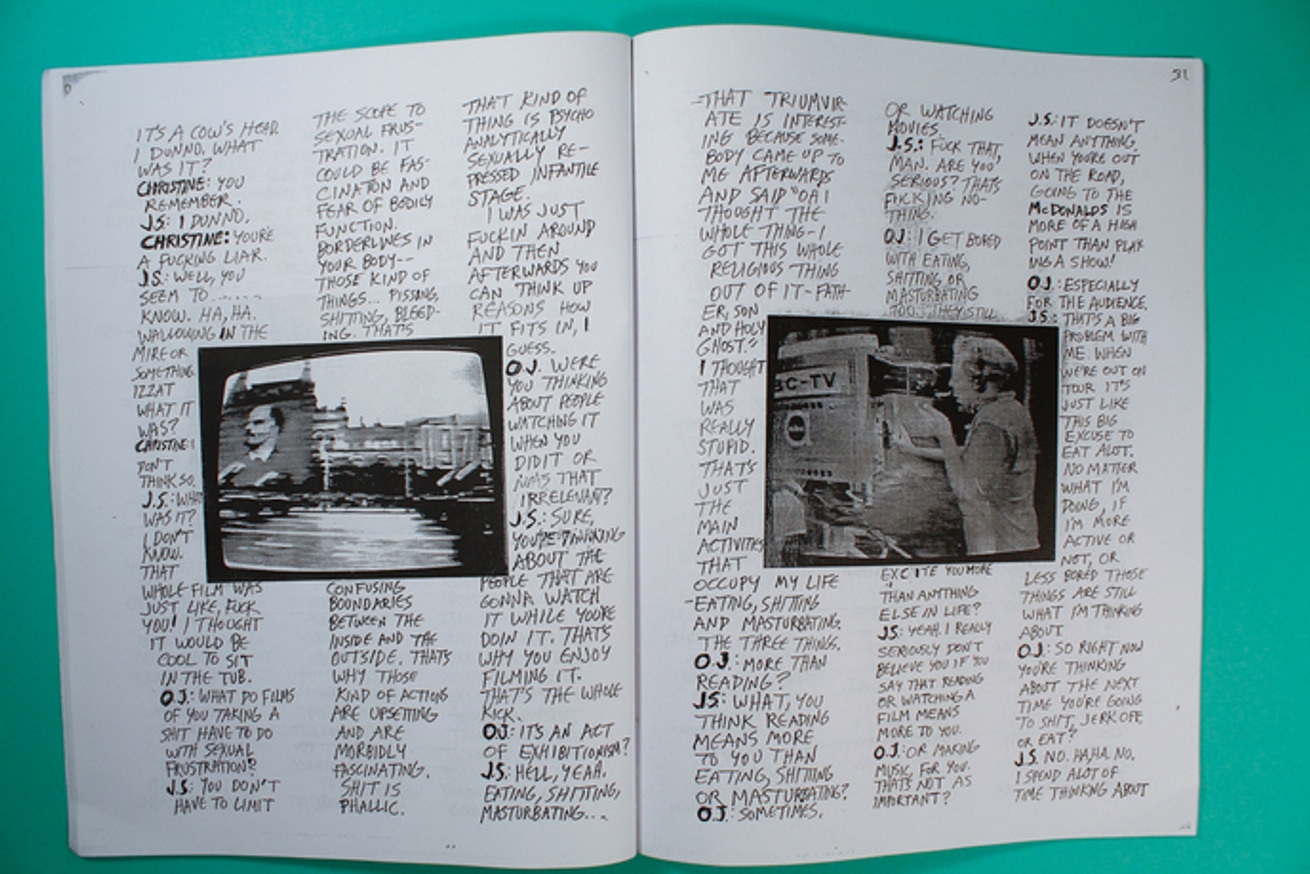 IT'S A COW'S HEAD.
I DUNNO. WHAT
WAS IT?
CHRISTINE: YOU
REMEMBER.
J.S: I DUNNO.
CHRISTINE: YOU'RE
A FUCKING LIAR.
J.S: WELL, YOU
SEEM TO ......
KNOW. HA, HA.
WALLOWING IN THE
MIRE OR
SOMETHING.
IZZAT
WHAT IT
WAS?
CHRISTINE: I
DON'T
THINK SO.
J.S.: WHAT
WAS IT?
I DON'T
KNOW.
THAT
WHOLE FILM WAS
JUST LIKE, FUCK
YOU! I THOUGHT
IT WOULD BE
COOL TO SIT
IN THE TUB.
O.J.: WHAT DO FILMS
OF YOU TAKING A
SHIT HAVE TO DO
WITH SEXUAL
FRUSTRATION?
J.S: YOU DON'T
HAVE TO LIMIT
THE SCOPE TO
SEXUAL FRUS-
TRATION. IT
COULD BE FAS-
CINATION AND
FEAR OF BODILY
FUNCTION.
BORDERLINES IN
YOUR BODY--
THOSE KIND OF
THINGS... PISSING,
SHITTING, BLEED-
ING. THAT'S
CONFUSING
BOUNDARIES
BETWEEN THE
INSIDE AND THE
OUTSIDE. THAT'S
WHY THOSE
KIND OF ACTIONS
ARE UPSETTING
AND ARE
MORBIDLY
FASCINATING.
SHIT IS
PHALLIC.
THAT KIND OF
THING IS PSYCHO
ANALYTICALLY
SEXUALLY RE-
PRESSED INFANTILE
STAGE.
I WAS JUST
FUCKIN AROUND
AND THEN
AFTERWARDS YOU
CAN THINK UP
REASONS HOW
IT FITS IN, I
GUESS.
O.J. WERE
YOU THINKING
ABOUT PEOPLE
WATCHING IT
WHEN YOU
DID IT OR
WAS THAT
IRRELEVANT?
J.S.: SURE,
YOU'RE THINKING
ABOUT THE
PEOPLE THAT ARE
GONNA WATCH
IT WHILE YOU'RE
DOIN IT. THAT'S
WHY YOU ENJOY
FILMING IT.
THAT'S THE WHOLE
KICK.
O.J: IT'S AN ACT
OF EXHIBITIONISM?
J.S: HELL, YEAH.
EATING, SHITTING,
MASTURBATING...
31
-THAT TRIUMVIR-
ATE IS INTEREST-
ING BECAUSE SOME-
BODY CAME UP TO
ME AFTERWARDS
AND SAID "OH I
THOUGHT THE
WHOLE THING-I
GOT THIS WHOLE
RELIGIOUS THING
OUT OF IT-FATH-
ER, SON
AND HOLY
GHOST."
I THOUGHT
THAT
WAS
REALLY
STUPID.
THAT'S
JUST
THE
MAIN
ACTIVITIES
THAT
OCCUPY MY LIFE
-EATING, SHITTING
AND MASTURBATING.
THE THREE THINGS.
O.J.: MORE THAN
READING?
JS: WHAT, YOU
THINK READING
MEANS MORE
TO YOU THAN
EATING, SHITTING
OR MASTURBATING?
O.J.: SOMETIMES.
OR WATCHING
MOVIES.
J.S.: FUCK THAT,
MAN. ARE YOU
SERIOUS? THAT'S
FUCKING NO-
THING.
OJ: I GET BORED
WITH EATING,
SHITTING OR
MASTURBATING
TOO. THEY STILL
BC-TV
EXCITE YOU MORE
THAN ANYTHING
ELSE IN LIFE?
JS: YEAH. I REALLY
SERIOUSLY DON'T
BELIEVE YOU IF YOU
SAY THAT READING
OR WATCHING A
FILM MEANS
MORE TO YOU.
O.J: OR MAKING
MUSIC, FOR YOU.
THAT'S NOT AS
IMPORTANT?
J.S: IT DOESN'T
MEAN ANYTHING.
WHEN YOU'RE OUT
ON THE ROAD,
GOING TO THE
McDONALDS IS
MORE OF A HIGH
POINT THAN PLAY-
ING A SHOW!
O.J.: ESPECIALLY
FOR THE AUDIENCE.
J.S: THAT'S A BIG
PROBLEM WITH
ME. WHEN
WE'RE OUT ON
TOUR IT'S
JUST LIKE
THIS BIG
EXCUSE TO
EAT ALOT.
NO MATTER
WHAT I'M
DOING, IF
I'M MORE
ACTIVE OR
NOT, OR
LESS BORED THOSE
THINGS ARE STILL
WHAT I'M THINKING
ABOUT.
O.J: SO RIGHT NOW
YOU'RE THINKING
ABOUT THE NEXT
TIME YOU'RE GOING
TO SHIT, JERK OFF
OR EAT?
J.S. NO. HA, HA. NO.
I SPEND ALOT OF
TIME THINKING ABOUT